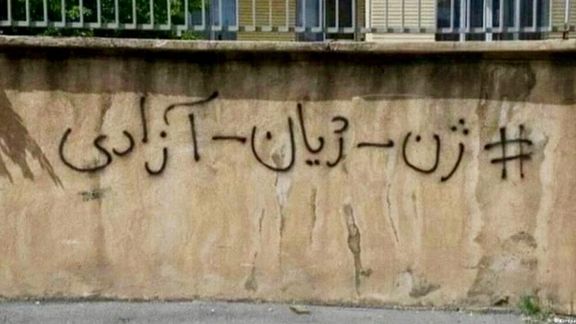 #ژن-ژیان-آزادی